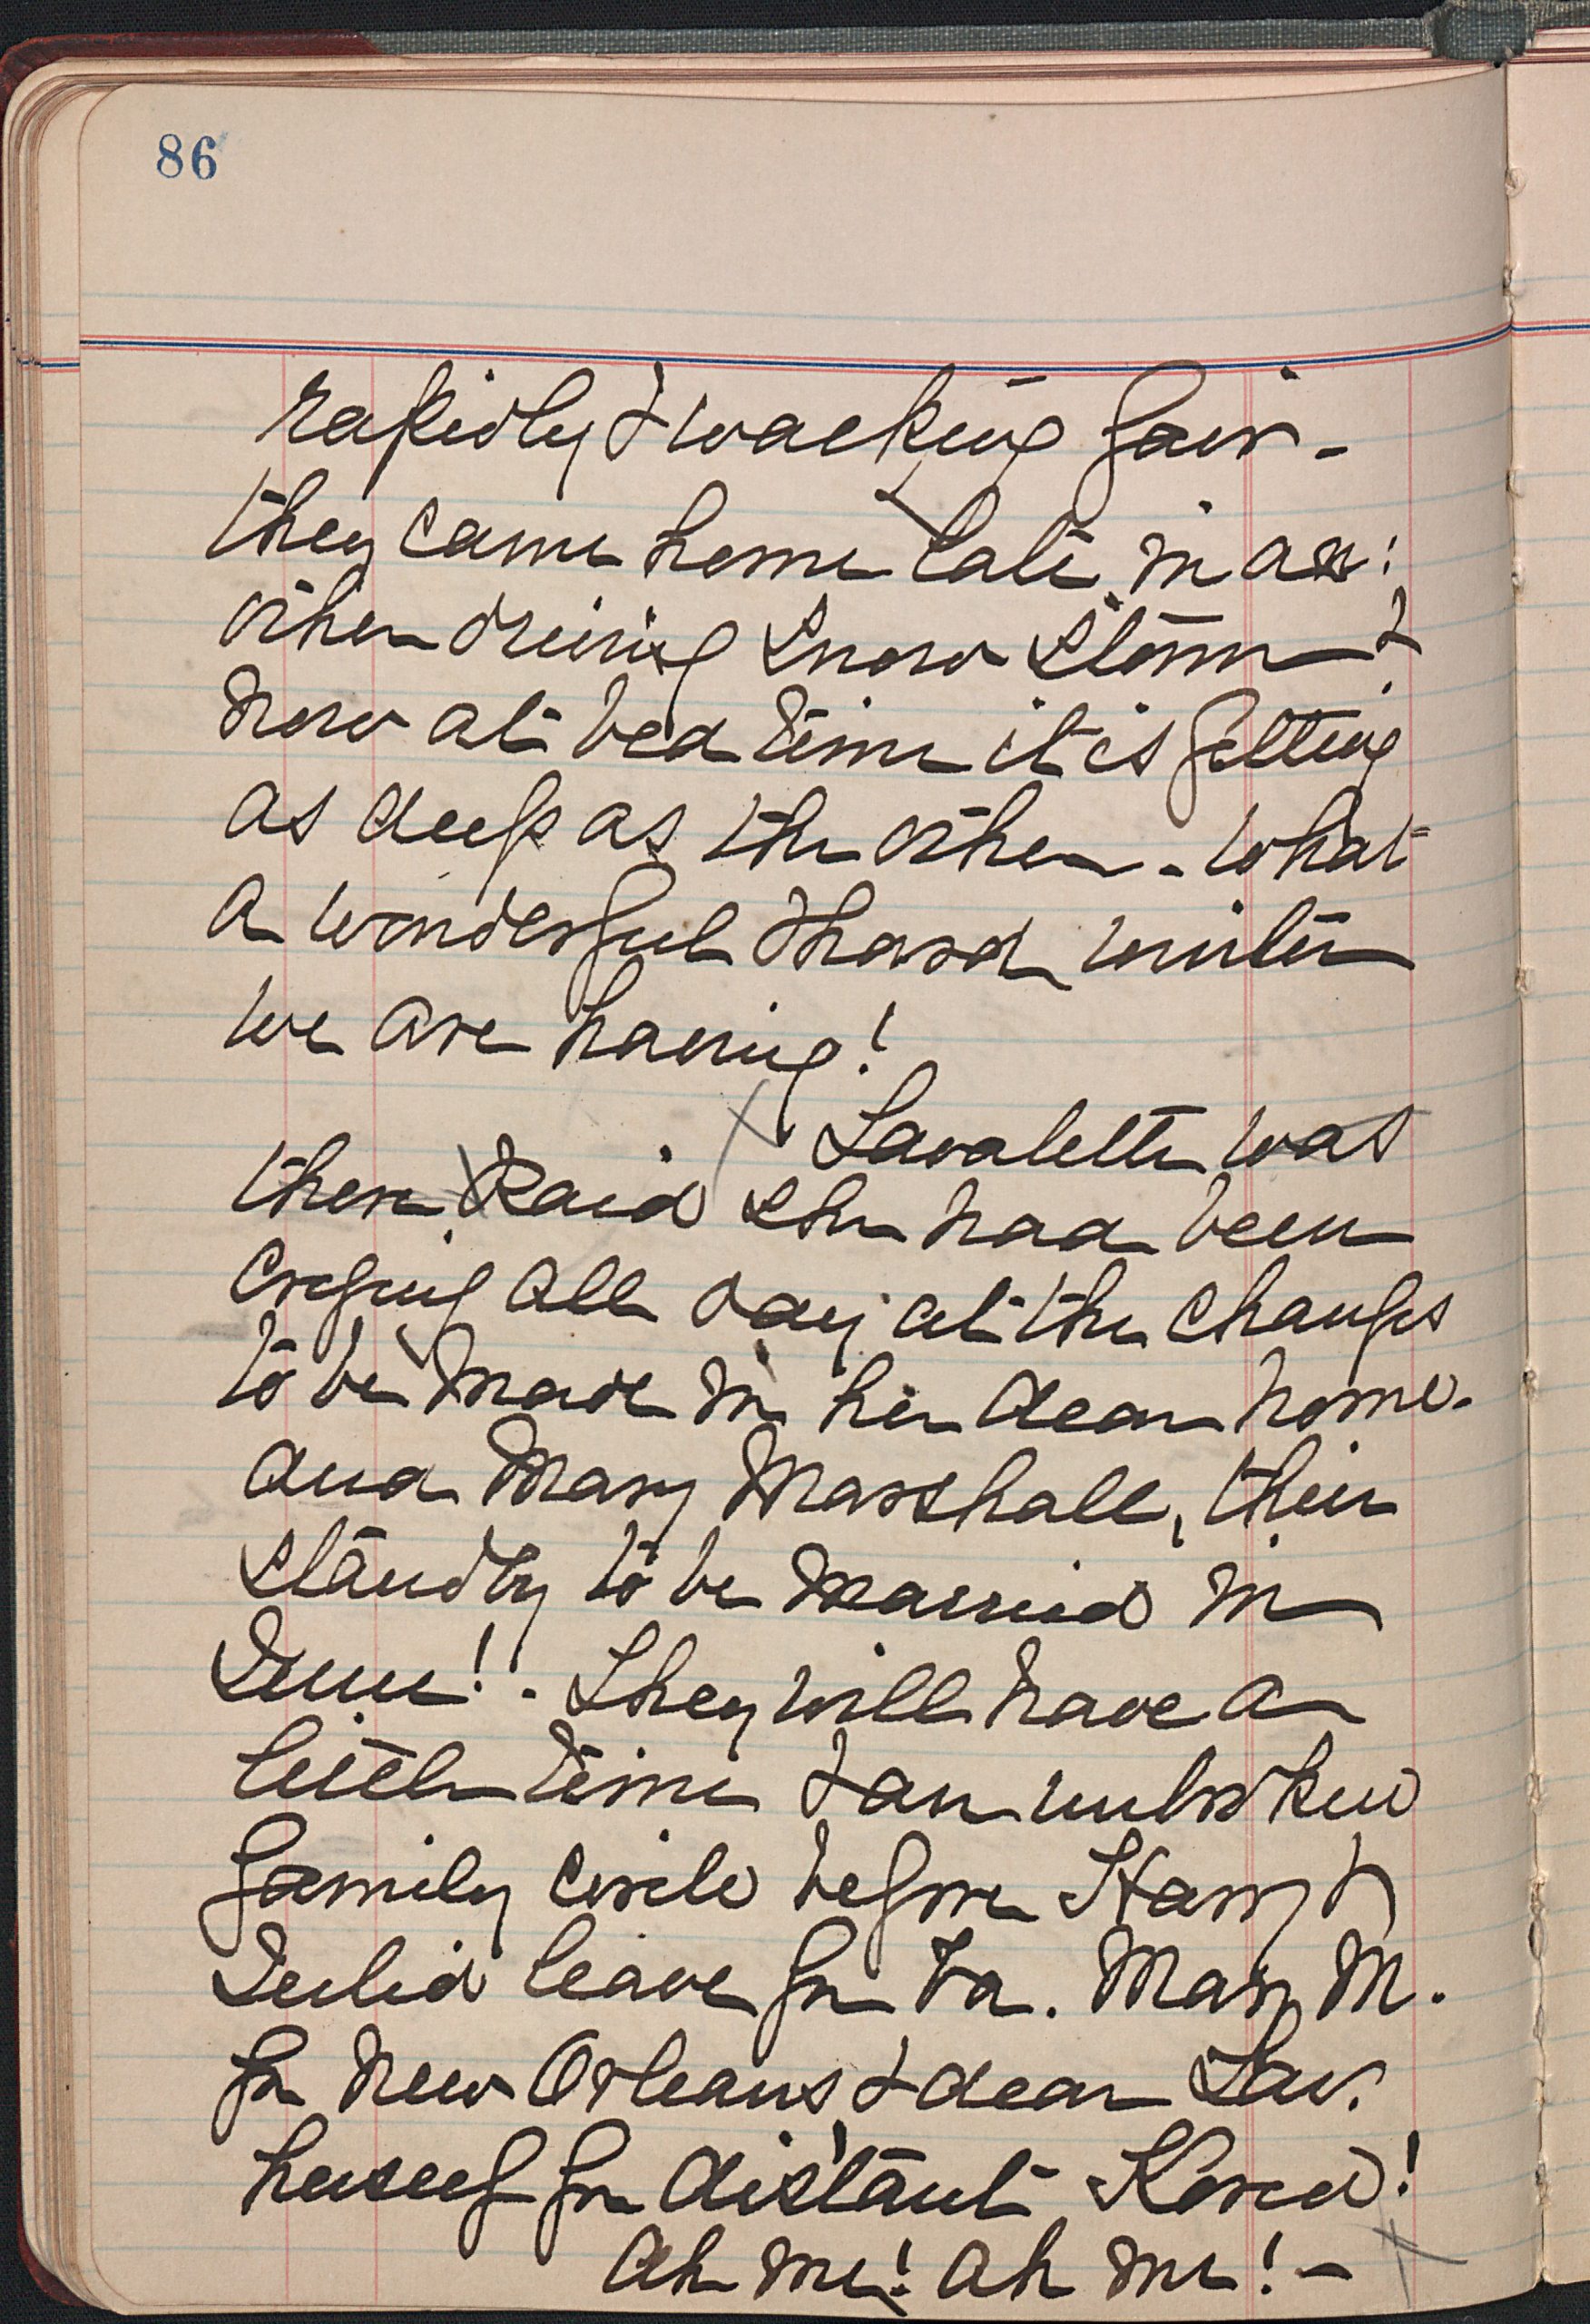 86
rapidly & walking fair -
they came home late in an:
other driving snow storm &
now at bed time it is getting
as deep as the other - What
a wonderful & hard winter
we are having!
Lavalette was
there & said she had been
crying all day at the changes
to be made in her dear home.
and Mary Marshall, their
standby to be married in
June! - They will have a
little time & an unbroken
family circle before Harry &
Julia leave for Va. Mary M.
for New Orleans, & dear Lav.
herself for distant Korea!
Ah me! Ah me! -